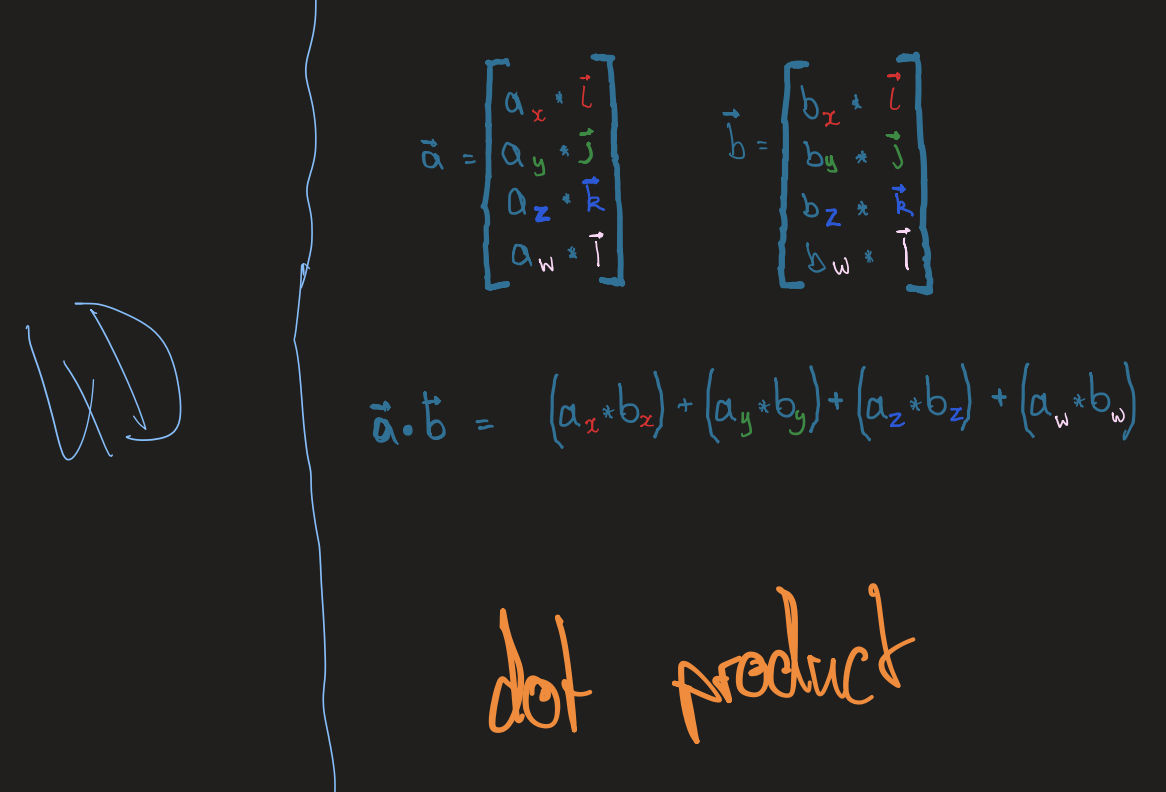 4D
a⃗ = [ a_x * i⃗
a_y * j⃗
a_z * k⃗
a_w * l⃗ ]
b⃗ = [ b_x * i⃗
b_y * j⃗
b_z * k⃗
b_w * l⃗ ]
a⃗ · b⃗ = (a_x * b_x) + (a_y * b_y) + (a_z * b_z) + (a_w * b_w)
dot product